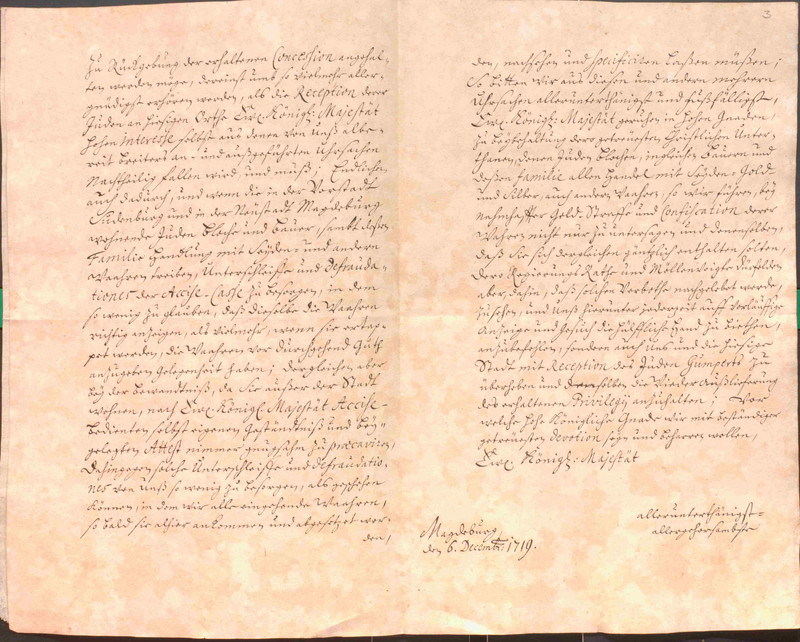 zu Rückgebung der erhaltenen Concession angehal-
ten werden möge, dereinst umb so vielmehr aller-
gnädigst erhören werden, als die Reception derer
Juden an hiesigen Orthe Ew. Königl: Majestät
hohen Interesse selbst aus denen von Unß albe-
reit breiters an- und außgeführten Uhrsachen
Nachtheilig fallen wird und muß; Endlichen
auch dadurch, und wenn die in der Vorstadt
Sudenburg und in der Neustadt Magdeburg
wohnende Juden Bloche und Bauer, sambt dessen
Familie Handlung mit Seyden- und andern
Waahren treiben, Unterschleiffe und Defrauda-
tiones der Accise-Casse zu besorgen, in dem
so wenig zu glauben, daß dieselbe die Waahren
richtig anzeigen, als vielmehr, wenn sie ertap-
pet werden, die Waahren vor durchgehend Guth
anzugeben Gelegenheit haben; dergleichen aber
bey der Bewandtniß, da sie außer der Stadt
wohnen, nach Ew. Königl. Majestät Accise-
Bedienten selbst eigenen Geständtniß und bey-
gelegten Attest nimmer gnugsahm zu præcaviren,
Dahingegen solche Unterschleiffe und Defraudatio-
nes von Unß so wenig zu besorgen, als geschehen
können, in dem wir alle eingehende Waahren,
so bald sie alhier ankommen und abgesetzet wer-
den,
3
den, nachsehen und specificiren laßen müßen;
So bitten wir aus diesen und andern mehrern
Uhrsachen allerunterthänigst und fußfälligst,
Ew. Königl: Majestät geruhen in hohen Gnaden,
zu Beybehaltung dero getreuesten Christlichen Unter-
thanen, denen Juden Blochen, ingleichen Bauern und
deßen Familie allen Handel mit Seyden- Gold-
und Silber, auch andern Waahren, so wir führen, bey
nahmhaffter Geld-Straffe und Confiscation derer
Wahren nicht nur zu untersagen und denenselben,
daß Sie sich dergleichen gäntzlich enthalten solten,
Dero Regierungs Rathe und Möllenvoigte
aber, dahin, daß solchen Verbothe nachgelebet werde,
zusehen, und Unß hierunter jederzeit auff Vorläuffige
Anzeige und Gesuch die hülffliche Hand zu biethen,
anzubefehlen, sondern auch Uns und die hiesige
Stadt mit Reception des Juden Gumperts zu
überheben und denselben die Wieder Außlieferung
des erhaltenen Privilegij anzuhalten; Vor
welche hohe Königliche Gnade wir mit beständiger
getreuesten Devotion seyn und beharren wollen,
Ew. Königl: Majestät
Magdeburg
den 6. Decembr: 1719.
allerunterthänigst-
allergehorsambste